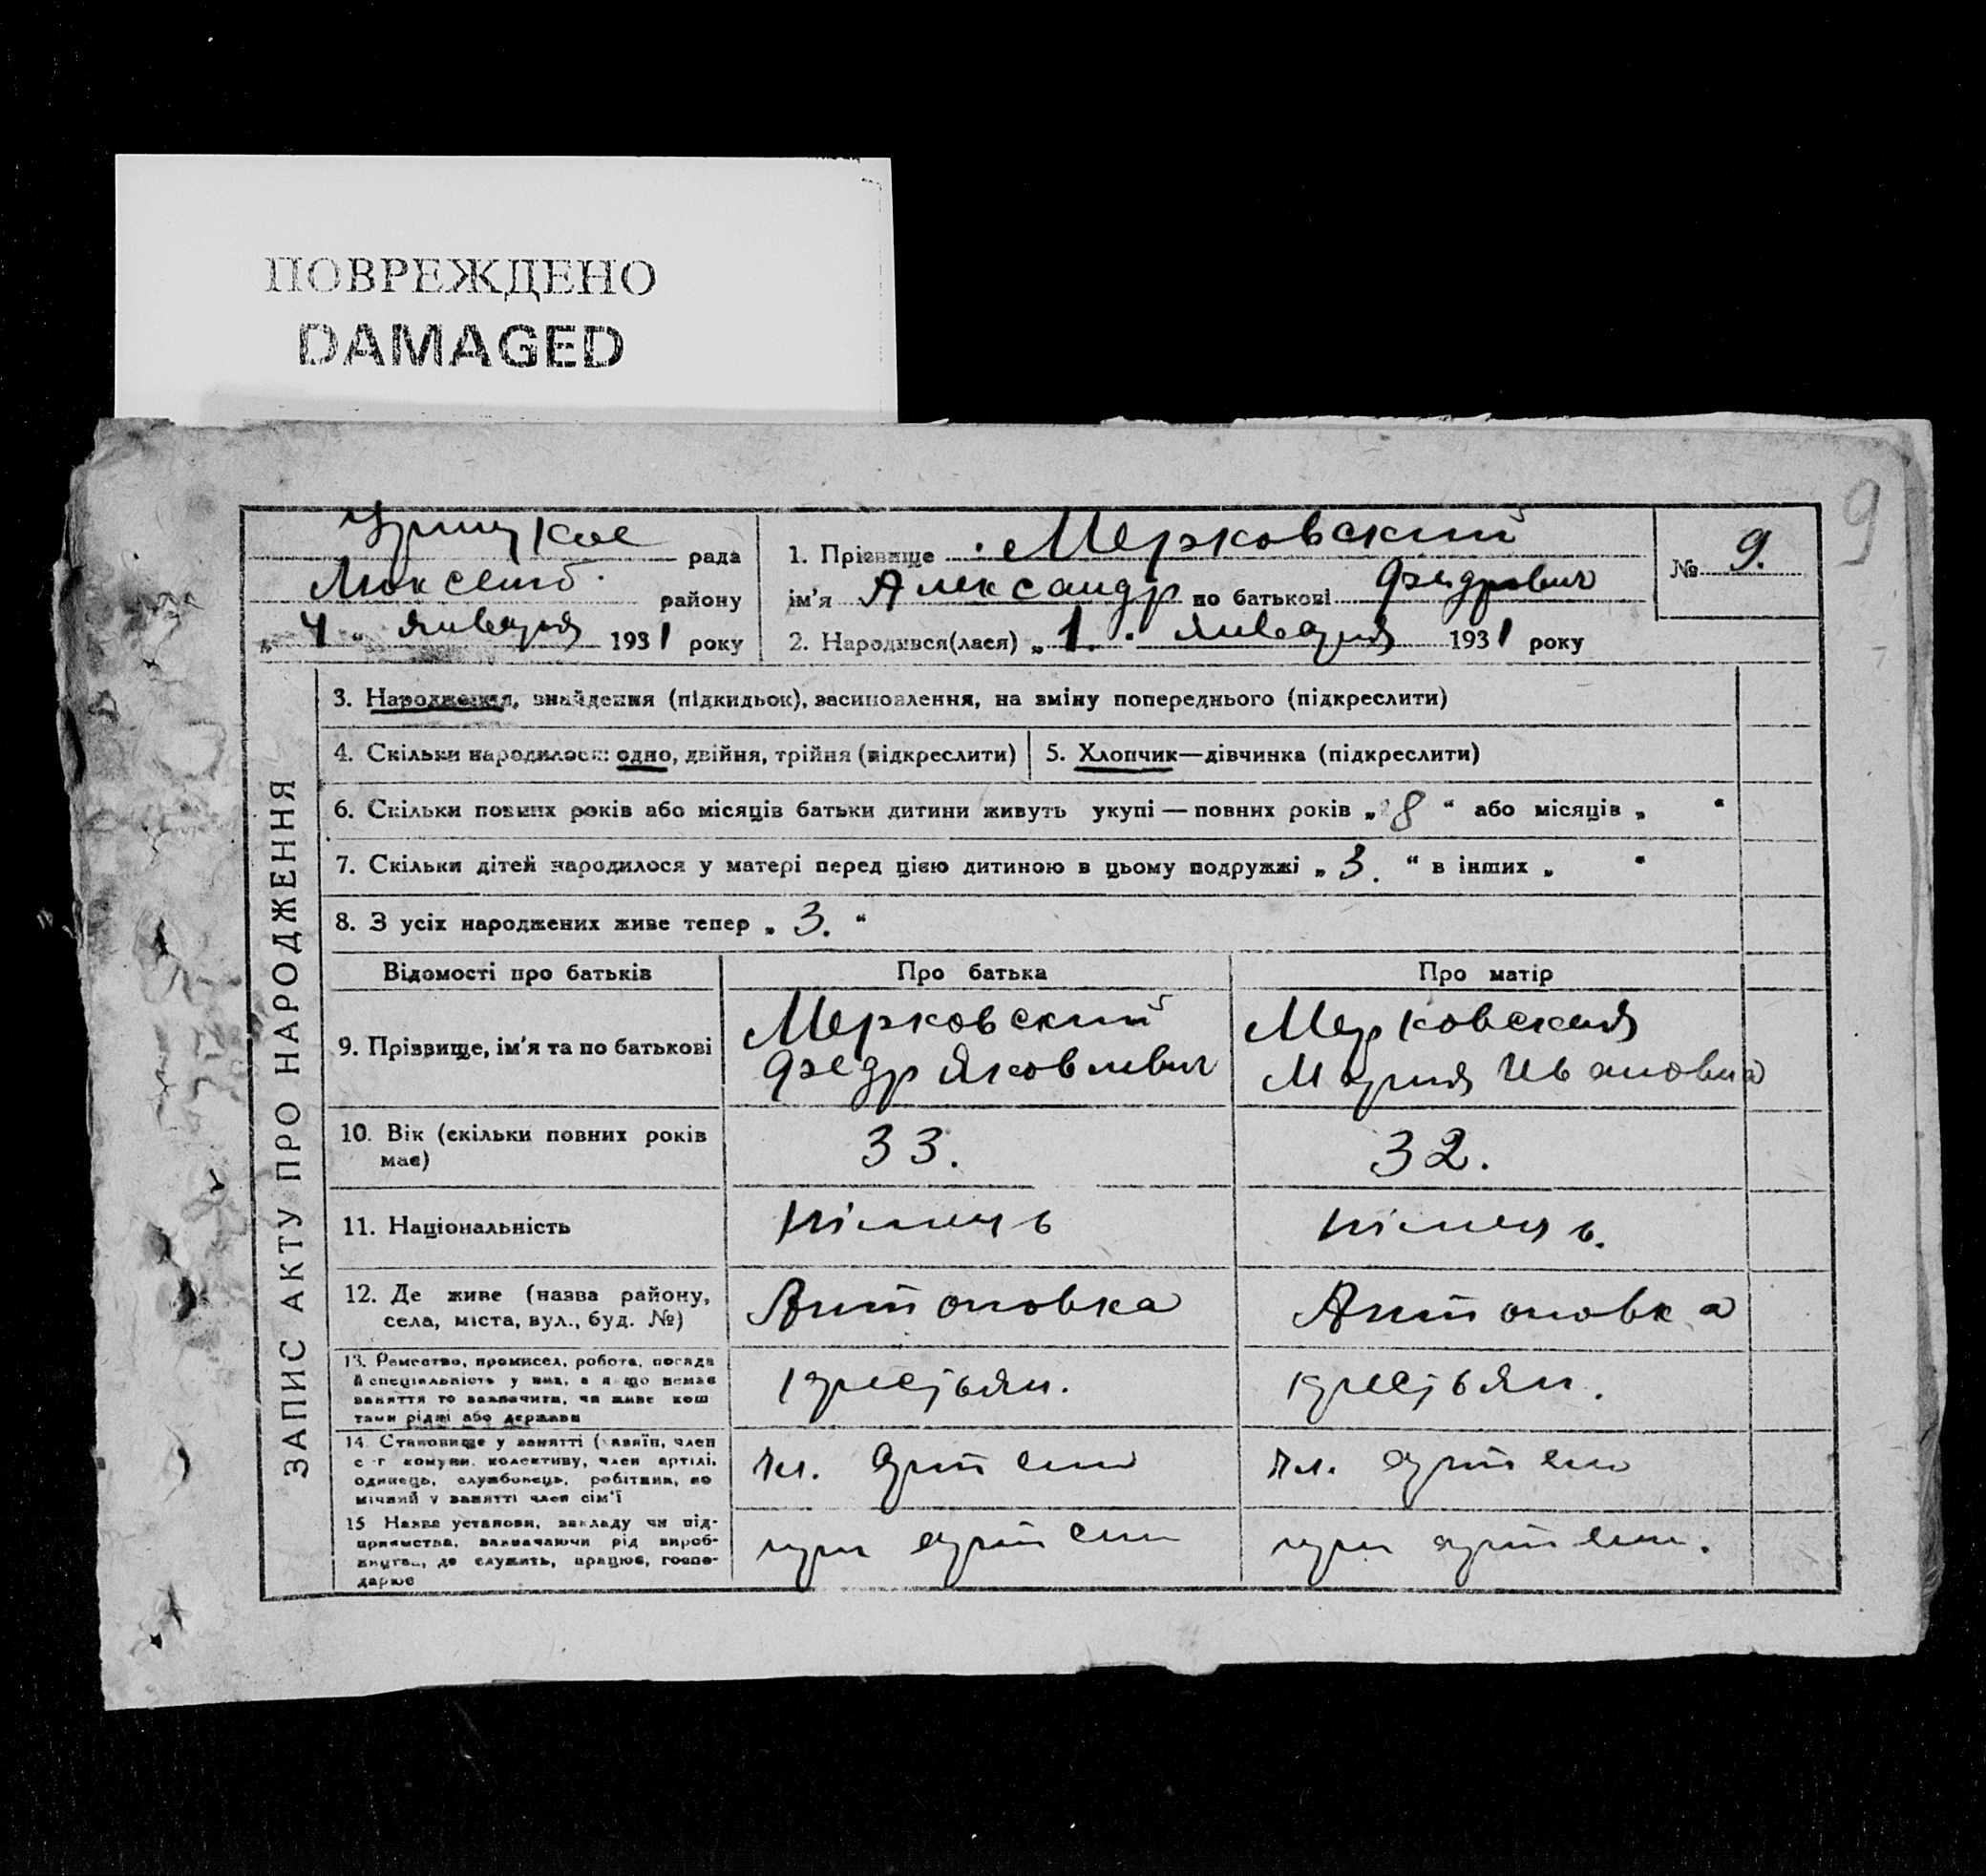 ПОВРЕЖДЕНО
DAMAGED
9
Урицкое рада
Люксемб. району
„ 4 “ января 1931 року
1. Прізвище Мерковский
ім'я Александр по батькові Федрович
2. Народився(лася) „ 1. “ января 1931 року
№ 9.
ЗАПИС АКТУ ПРО НАРОДЖЕННЯ
3. Народження, знайдення (підкидьок), засиновлення, на зміну попереднього (підкреслити)
4. Скільки народилося: одно, двійня, трійня (підкреслити)
5. Хлопчик—дівчинка (підкреслити)
6. Скільки повних років або місяців батьки дитини живуть укупі — повних років „ 8 “ або місяців „ “
7. Скільки дітей народилося у матері перед цією дитиною в цьому подружжі „ 3. “ в інших „ “
8. З усіх народжених живе тепер „ 3. “
Відомості про батьків Про батька Про матір
9. Прізвище, ім'я та по батькові
Мерковский
Федр Яковлевич
Мерковская
Мария Ивановна
10. Вік (скільки повних років
має)
33.
32.
11. Національність
німець
німець.
12. Де живе (назва району,
села, міста, вул., буд. №)
Антоновка
Антоновка
13. Ремество, промисел, робота, посада
й спеціяльність у них, а якщо немає
заняття то зазначити, чи живе кош
тами рідні або держави
кресьян.
кресьян.
14. Становище у занятті (хазяїн, член
с-г комуни, колективу, член артілі,
одинець, службовець, робітник, по
мічний у занятті член сім'ї
чл. артели
чл. артели
15 Назва установи, закладу чи під-
приємства, зазначаючи рід вироб-
ництва, де служить, працює, госпо-
дарює
при артели
при артели.